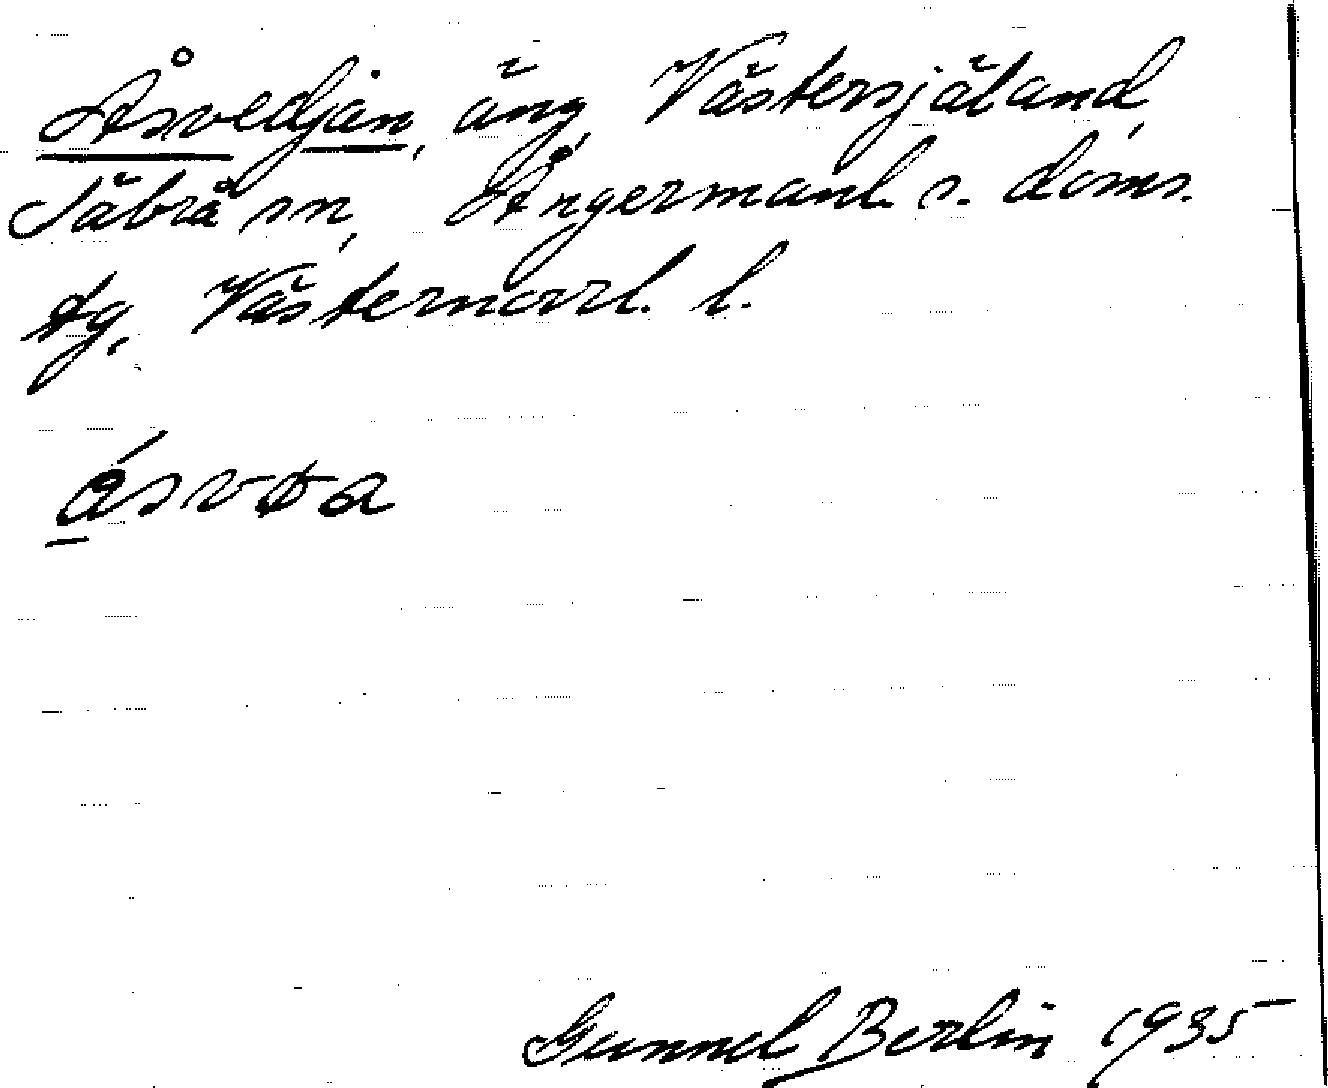 Åsvedjan, äng, Västersjäland,
Säbrå sn, Ångermanl. s. doms.
tg, Västernorrl. l.
Gunnel Berlin 1935